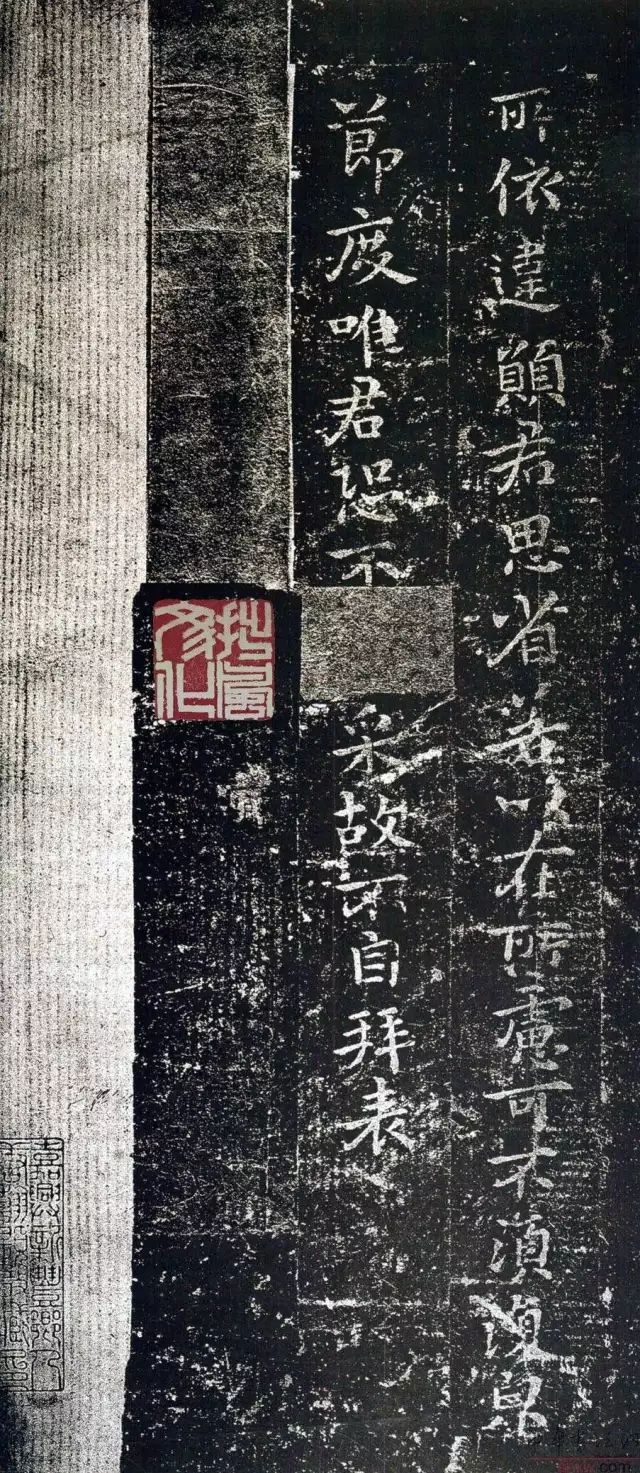 所依違願君思省若以在所慮可不須復皃
節度唯君恐不
采故不自拜表
拙風文化